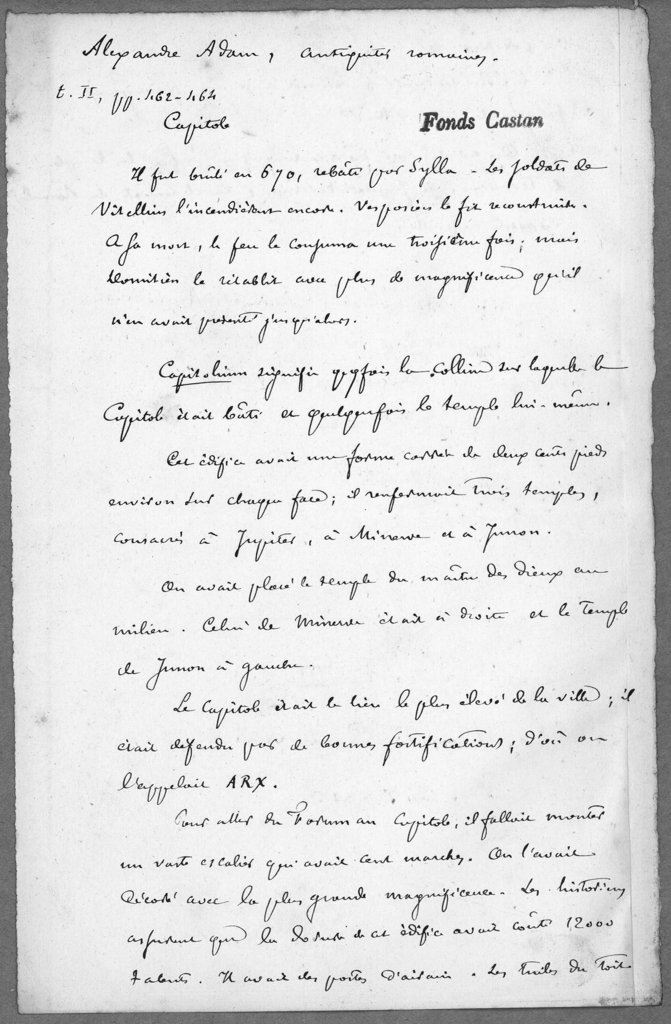 Alexandre Adam, antiquités romaines.
t. II, pp. 462-464
Capitole
Fonds Castan
Il fut brûlé en 670, rebâti par Sylla. Les soldats de
Vitellius l'incendièrent encore. Vespasien le fit reconstruire.
A sa mort, le feu le consuma une troisième fois; mais
Domitien le rétablit avec plus de magnificence qu'il
n'en avait présenté jusqu'alors.
Capitolium signifie qqfois la colline sur laquelle le
Capitole était bâti et quelquefois le temple lui-même.
Cet édifice avait une forme carrée de deux cents pieds
environ sur chaque face; il renfermait trois temples,
consacrés à Jupiter, à Minerve et à Junon.
On avait placé le temple du maître des dieux au
milieu. Celui de Minerve était à droite et le temple
de Junon à gauche.
Le Capitole était le lieu le plus élevé de la ville; il
était défendu par de bonnes fortifications; d'où on
l'appelait ARX.
Pour aller du Forum au Capitole, il fallait monter
un vaste escalier qui avait cent marches. On l'avait
décoré avec la plus grande magnificence. Les historiens
assurent que la dorure de cet édifice avait coûté 12000
talents. Il avait des portes d'airain. Les tuiles du toit